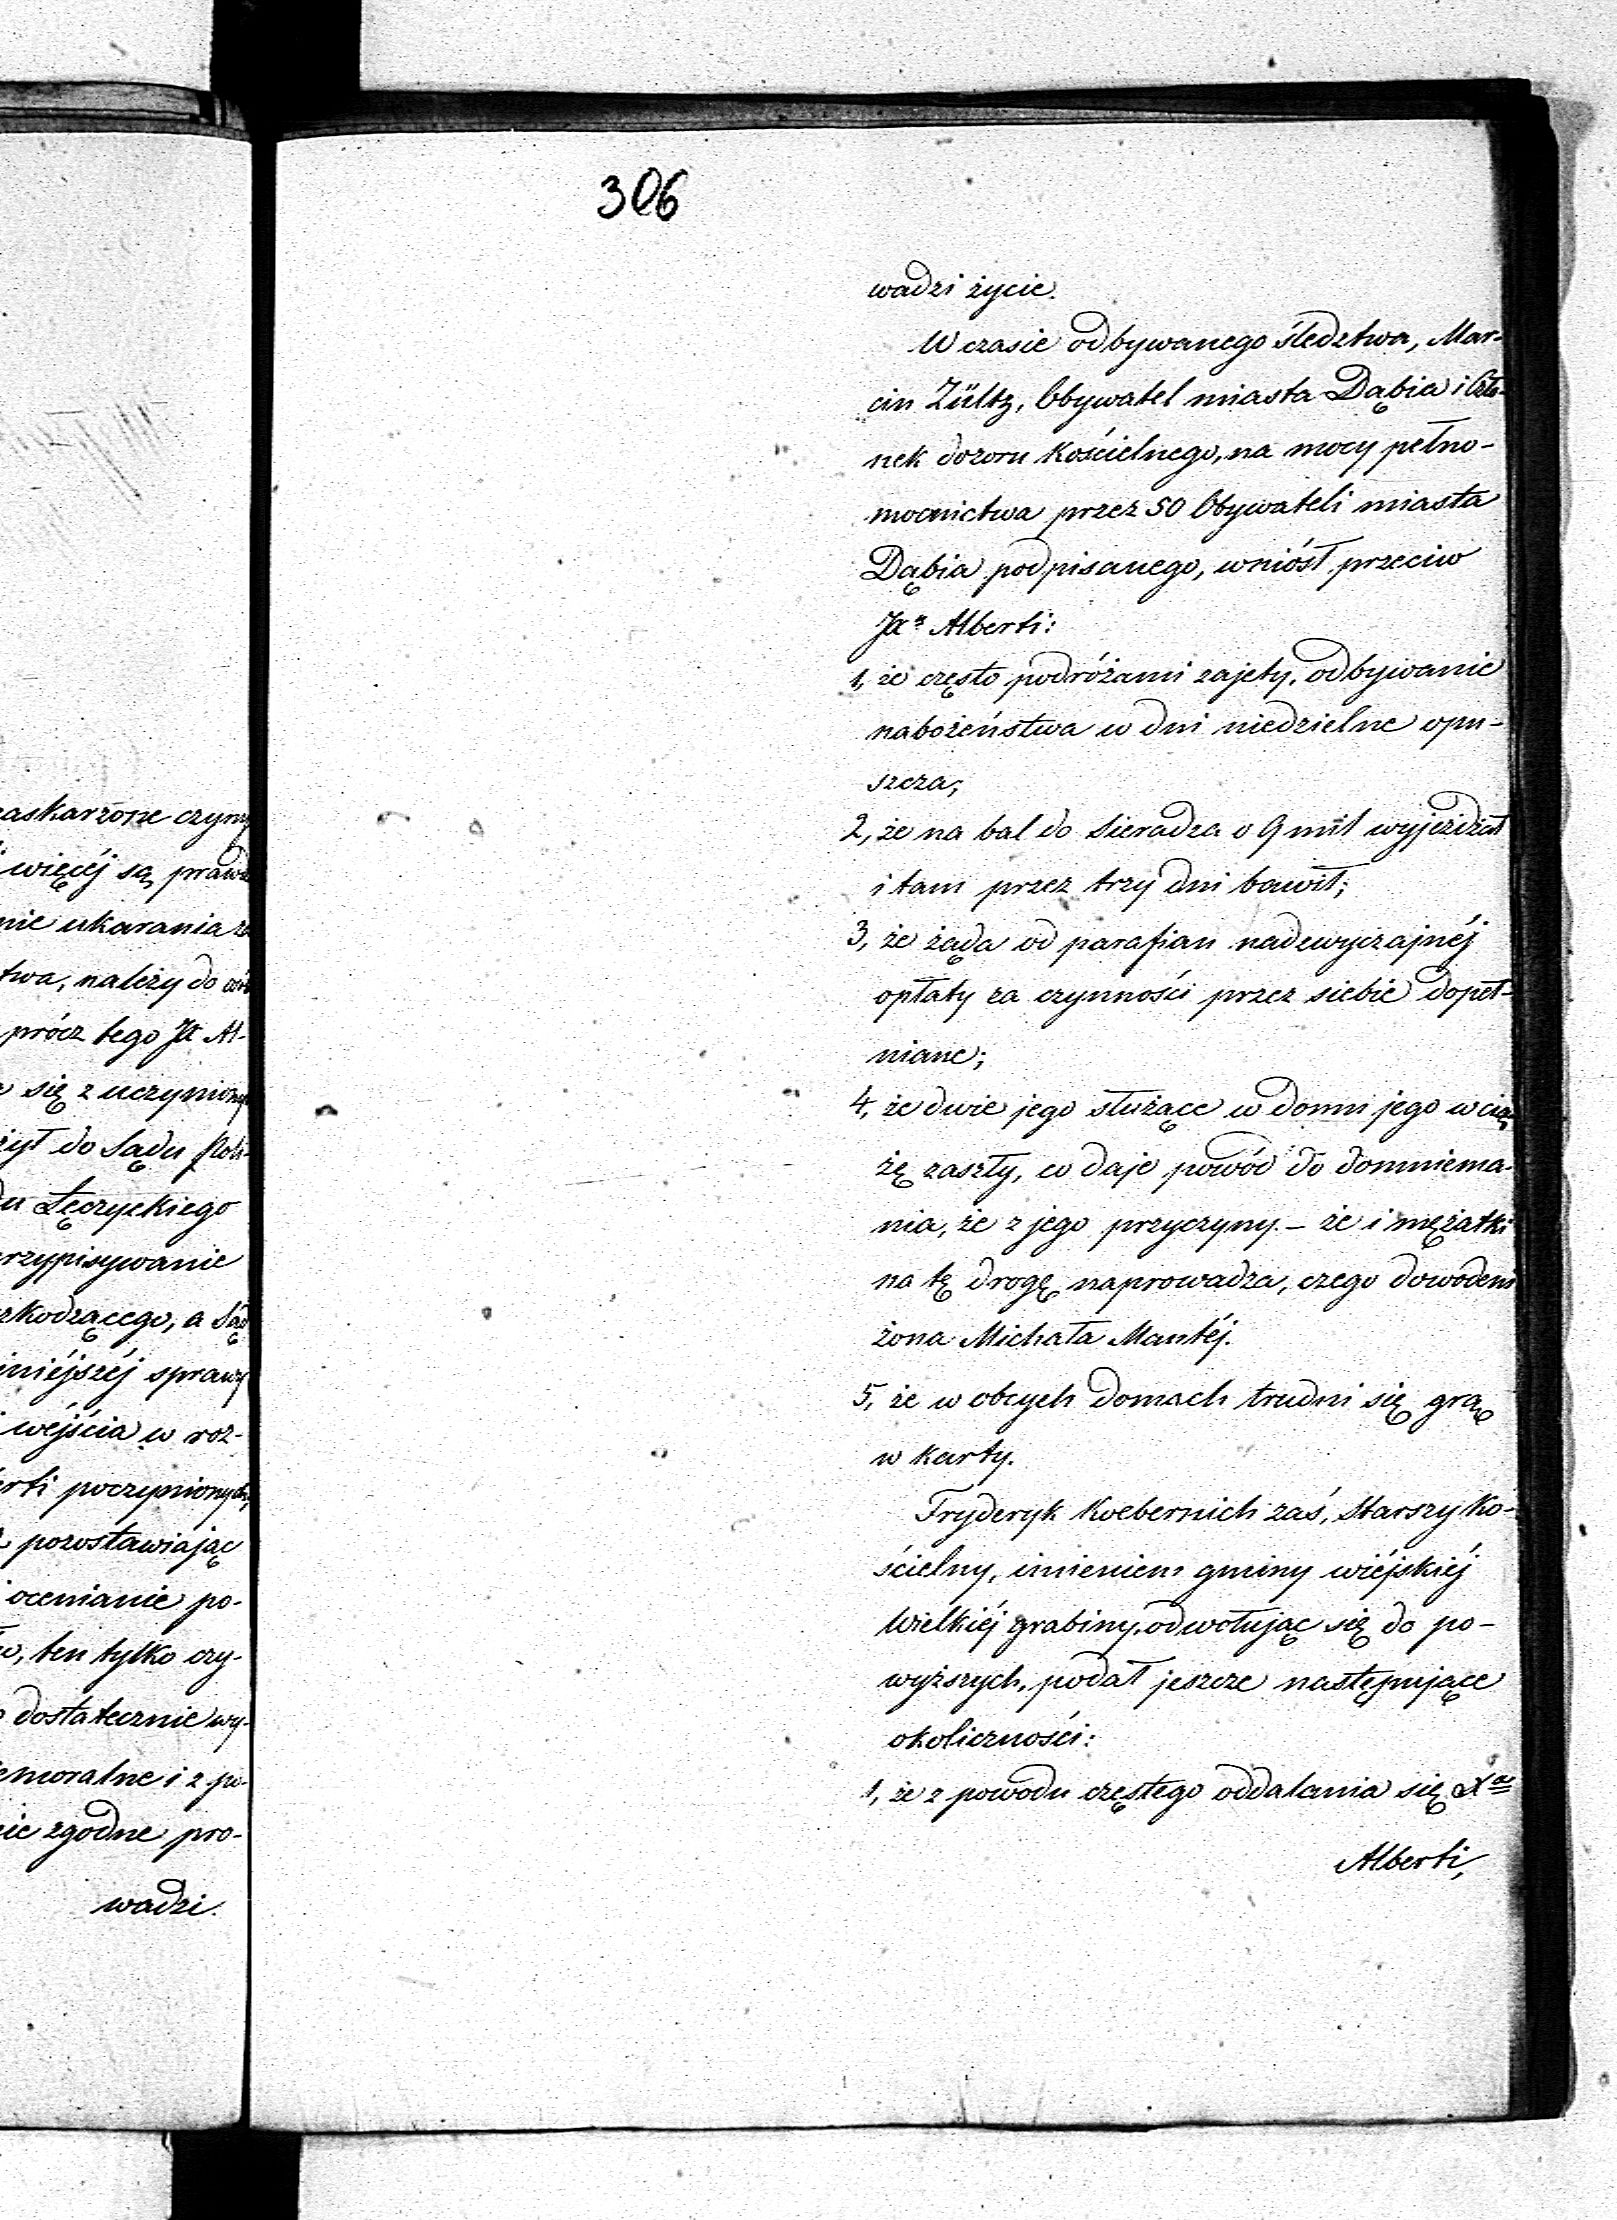 306
wadzi życie.
W czasie odbywanego śledztwa, Mar-
cin Zültz, Obywatel miasta Dąbia i Czło-
nek dozoru Kościelnego, na mocy pełno-
mocnictwa przez 50 Obywateli miasta
Dąbia podpisanego, wniósł przeciw
Alberti:
1, że często podróżami zajęty, odbywanie
nabożeństwa w dni niedzielne opu-
szcza;
2, że na bal do Sieradza o 9 mil wyjeżdżał
i tam przez trzy dni bawił;
3, że żąda od parafian nadzwyczajnéj
opłaty za czynności przez siebie dopeł-
niane;
4, że dwie jego służące w domu jego w cią-
żę zaszły, co daje powód do domniema-
nia, że z jego przyczyny. – że i mężatki
na tę drogę naprowadza, czego dowodem
żona Michała Mantéj.
5, że w obcych domach trudni się grą
w karty.
Fryderyk Koebernich zaś, Starszy Ko-
ścielny, imieniem gminy wiéjskiéj
Wielkiéj grabiny, odwołując się do po-
wyższych, podał jeszcze następujące
okoliczności:
1, że z powodu częstego oddalania się Xa
Alberti,
zaskarżone czyny
więcéj są, prawd
nie ukarania
twa, należy do
prócz tego JX Al-
się z uczynion
żył do Sądu Poli-
du Łęczyckiego
przypisywanie
szkodzącego, a Sąd
niniéjszéj sprawy
wéjścia w roz-
erti poczynionych,
pozostawiając
ocenianie po-
ten tylko czy-
dostatecznie wy-
emoralne i z po-
nie zgodne pro-
wadzi.